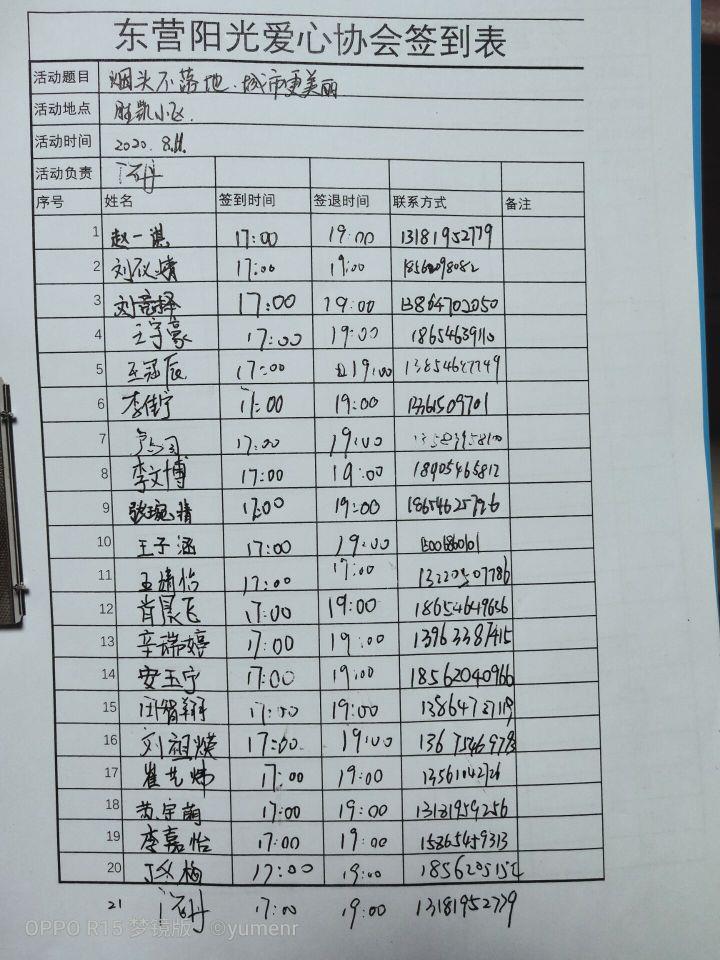 东营阳光爱心协会签到表
活动题目 烟头不落地.城市更美丽
活动地点 胜凯小区.
活动时间 2020. 8.11.
活动负责
序号 姓名 签到时间 签退时间 联系方式 备注
1 赵一淇 17:00 19:00 13181952779
2 刘仪婧 17:00 19:00 18562098082
3 刘竞择 17:00 19:00 864702050
4 王宇豪 17:00 19:00 18654639110
5 王冠辰 17:00 19:00
6 李佳宁 17:00 19:00 1361509701
7 17:00 19:00
8 李文博 17:00 19:00 18905465812
9 张琬婧 17:00 19:00 18654625726
10 王子涵 17:00 19:00
11 王靖怡 17:00 17:00 13220507786
12 肖晨飞 17:00 19:00 18654649656
13 辛瑞婷 17:00 19:00 13963387415
14 安玉宁 17:00 19:00 18562040966
15 闫智翔 17:00 19:00
16 刘祖煐 17:00 19:00 13675469793
17 崔艺炜 17:00 19:00 13561042726
18 苏宇萌 17:00 19:00 13181959256
19 李嘉怡 17:00 19:00 15865459313
20 17:00 19:00
21 17:00 19:00 13181952779
OPPO R15 梦镜版 ©yumenr